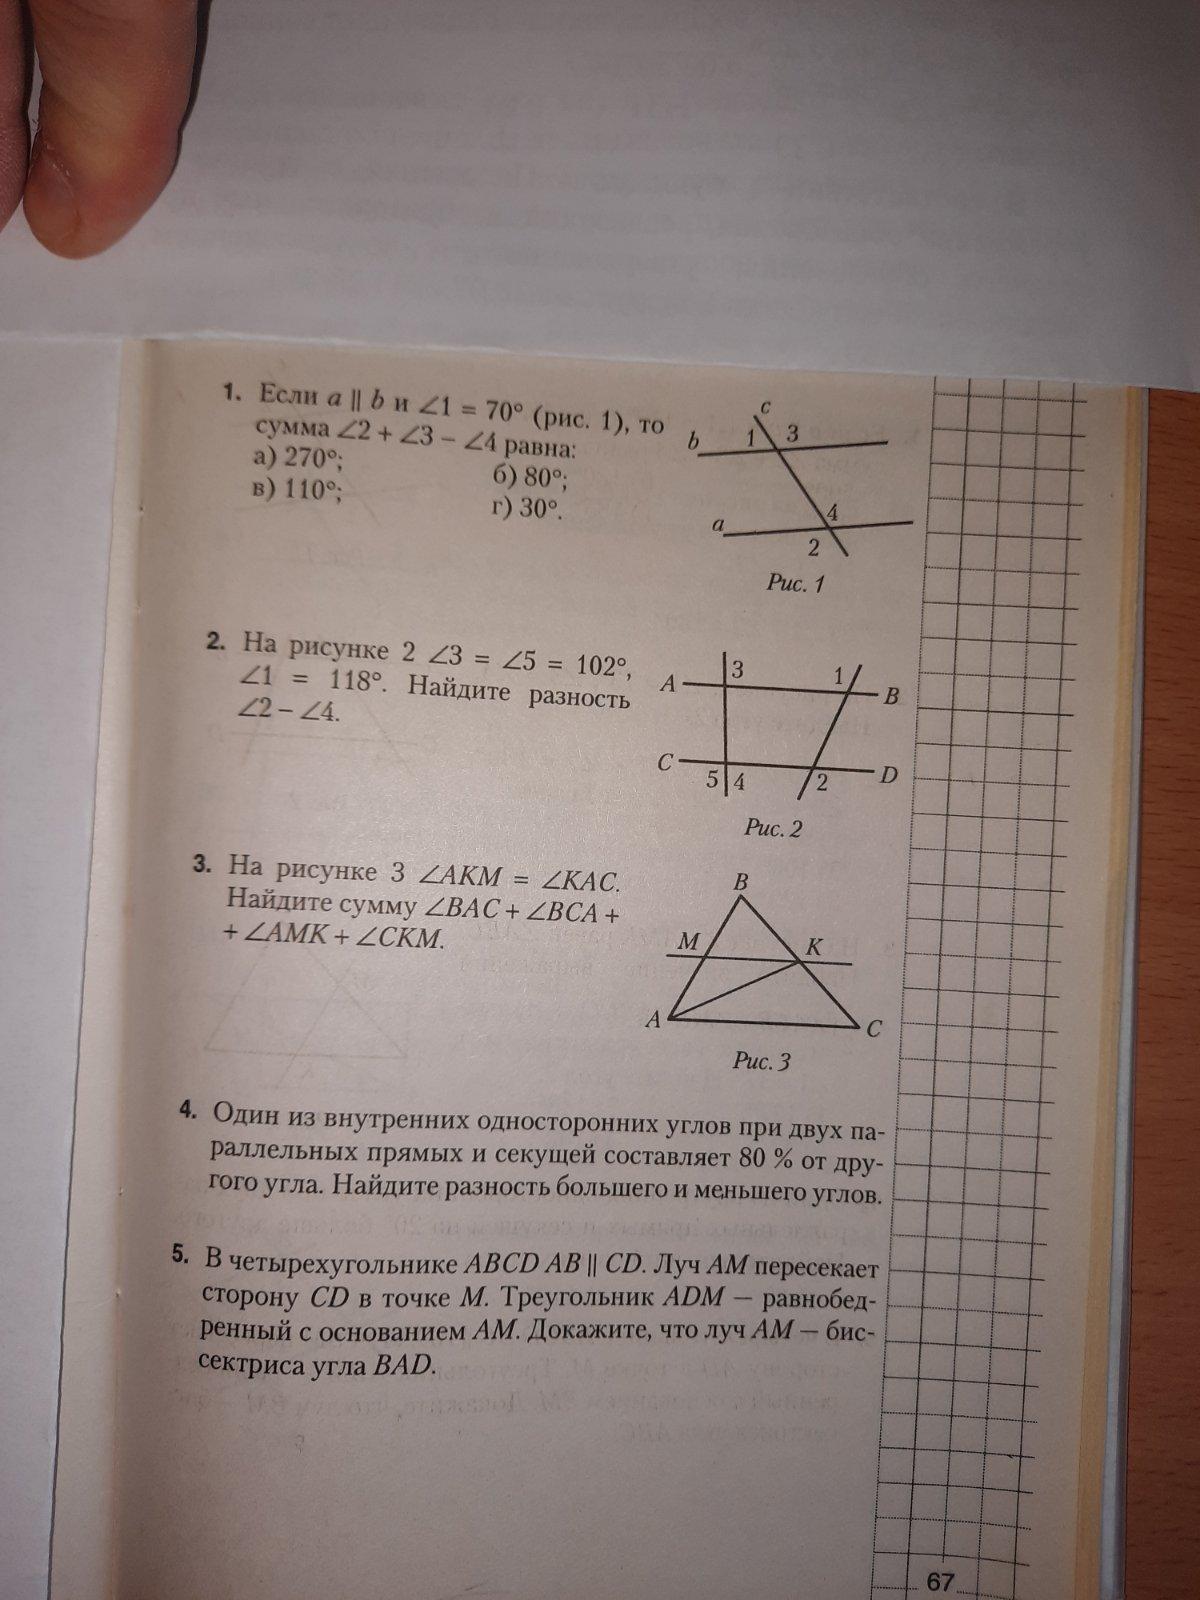 1. Если a || b и ∠1 = 70° (рис. 1), то
сумма ∠2 + ∠3 – ∠4 равна:
а) 270°; б) 80°;
в) 110°; г) 30°.
c
b 1 3
a 4
2
Рис. 1
2. На рисунке 2 ∠3 = ∠5 = 102°,
∠1 = 118°. Найдите разность
∠2 – ∠4.
A 3 1 B
C 5 4 2 D
Рис. 2
3. На рисунке 3 ∠AKM = ∠KAC.
Найдите сумму ∠BAC + ∠BCA +
+ ∠AMK + ∠CKM.
B
M K
A C
Рис. 3
4. Один из внутренних односторонних углов при двух па-
раллельных прямых и секущей составляет 80 % от дру-
гого угла. Найдите разность большего и меньшего углов.
5. В четырехугольнике ABCD AB || CD. Луч AM пересекает
сторону CD в точке M. Треугольник ADM — равнобед-
ренный с основанием AM. Докажите, что луч AM — бис-
сектриса угла BAD.
67